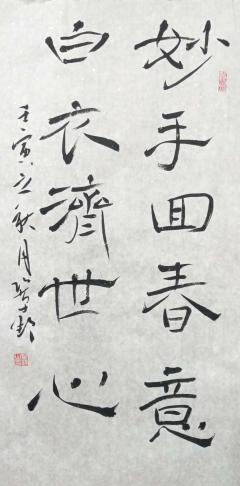 妙手回春意
白衣濟世心
壬寅立秋月